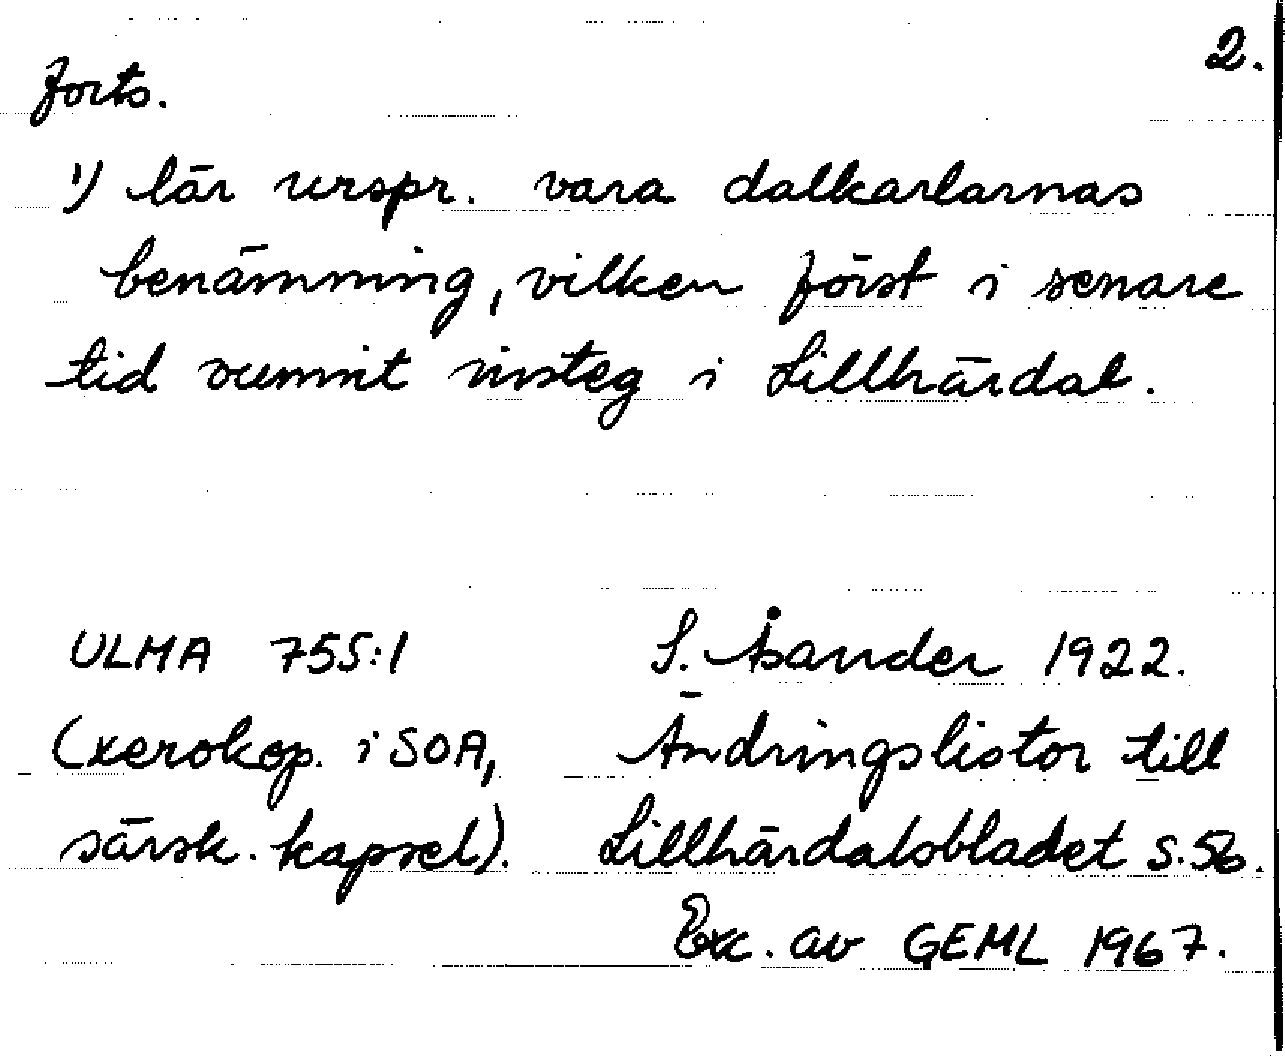 2.
forts.
1) lär urspr. vara dalkarlarnas
benämning, vilken först i senare
tid vunnit insteg i Lillhärdal.
ULMA 755:1 S. Åsander 1922.
(xerokop. i SOA, Ändringslistor till
särsk. kapsel). Lillhärdalsbladet s.56.
Exc. av GEML 1967.